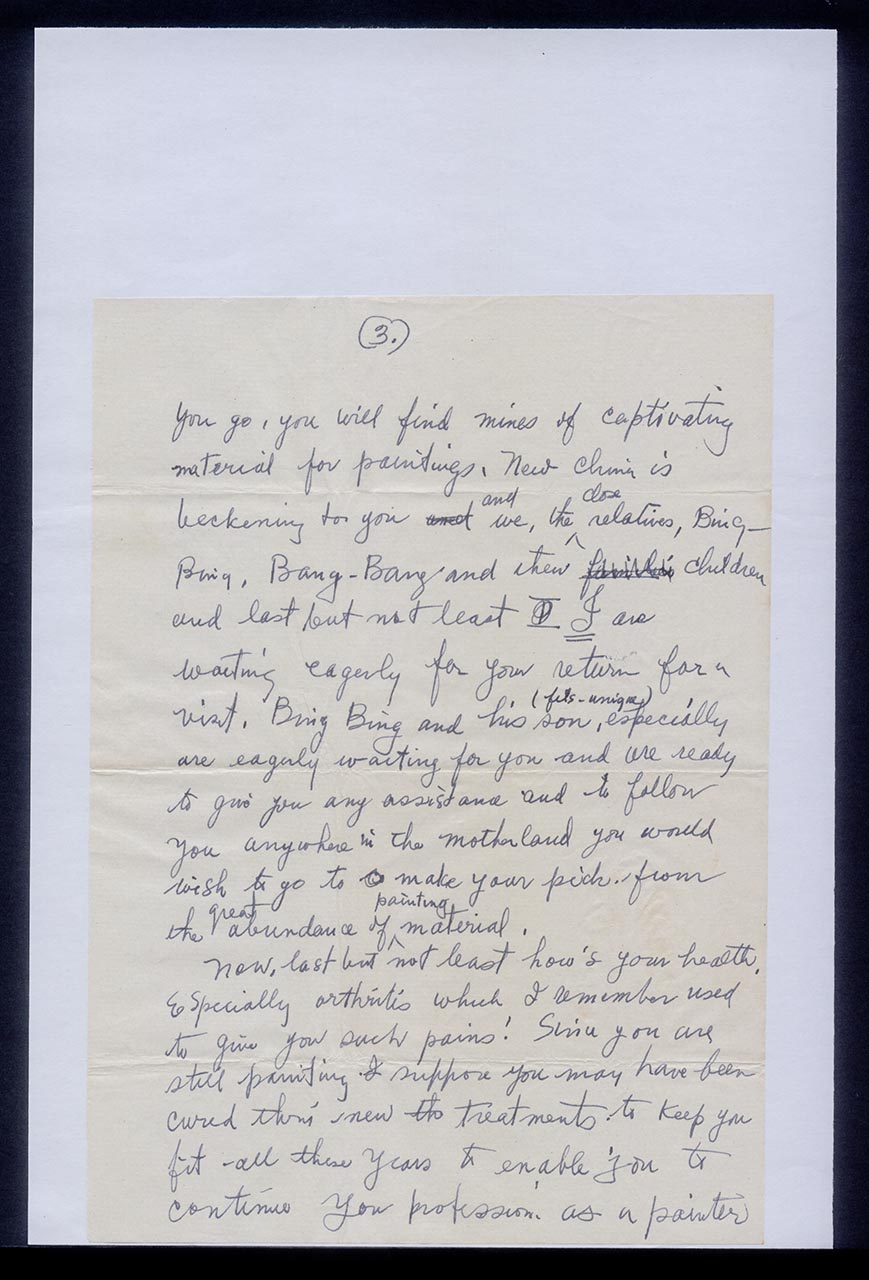 (3.)
you go, you will find mines of captivating
material for paintings. New China is
and close
beckening to you and we, the relatives, Bing-
Bing, Bang-Bang and their children
and last but not least I I are
waiting eagerly for your return for a
(fils-unique)
visit. Bing Bing and his son, especially
are eagerly waiting for you and are ready
to give you any assistance and to follow
you anywhere in the motherland you would
wish to go to make your pick from
great painting
the abundance of material.
Now, last but not least how's your health,
Especially arthritis which I remember used
to give you such pains! Since you are
still painting I suppose you may have been
cured new treatments to keep you
fit all these years to enable you to
continue your profession as a painter